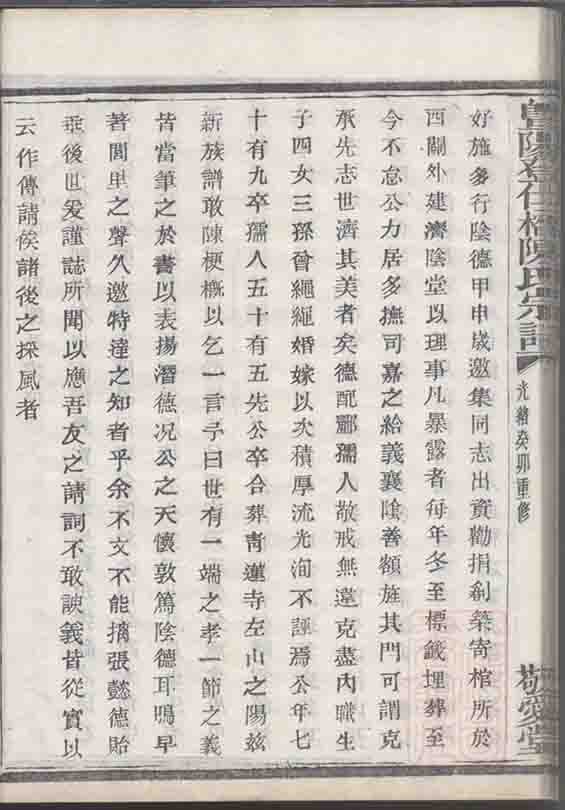 好施多行陰德甲申歲邀集同志出資勸捐創築寄棺所於
西關外建濟陰堂以理事凡暴露者每年冬至標籤埋葬至
今不怠公力居多撫司嘉之給義襄陰善額旌其門可謂克
承先志世濟其美者矣德配酈孺人敬戒無違克盡內職生
子四女三孫曾繩繩婚嫁以次積厚流光洵不誣焉公年七
十有九卒孺人五十有五先公卒合葬靑蓮寺左山之陽茲
新族譜敢陳梗概以乞一言予曰世有一端之孝一節之義
皆當筆之於書以表揚潛德况公之天懷敦篤陰德耳鳴早
著閭里之聲久邀特達之知者乎余不文不能摛張懿德貽
垂後世爰謹誌所聞以應吾友之請詞不敢諛義皆從實以
云作傳請俟諸後之採風者
陽 橋陳氏宗譜
光緖癸卯重修
敬愛堂